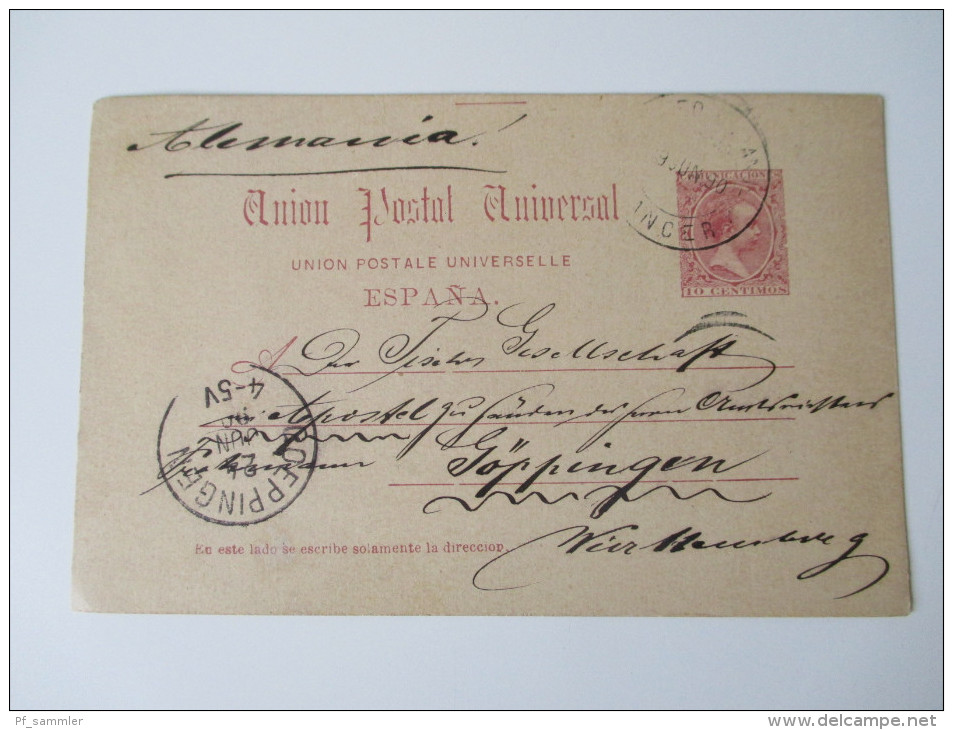 Alemania!
Union Postal Universal
UNION POSTALE UNIVERSELLE
ESPAÑA.
COMUNICACIONES
10 CENTIMOS
A Der Gesellschaft
Apostel zu Händen des Herrn Amtsrichters
Göppingen
Württemberg
GOEPPINGEN
24
JUN
90
4-5V
En este lado se escribe solamente la direccion.
Pf_sammler
www.delcampe.net